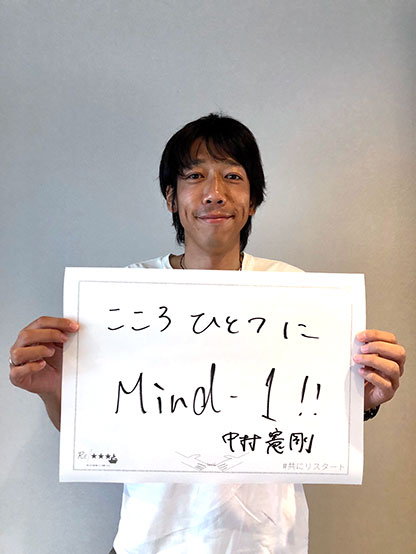 こころ ひとつ に
Mind - 1 !!
中村憲剛
Re ★★★
#共にリスタート